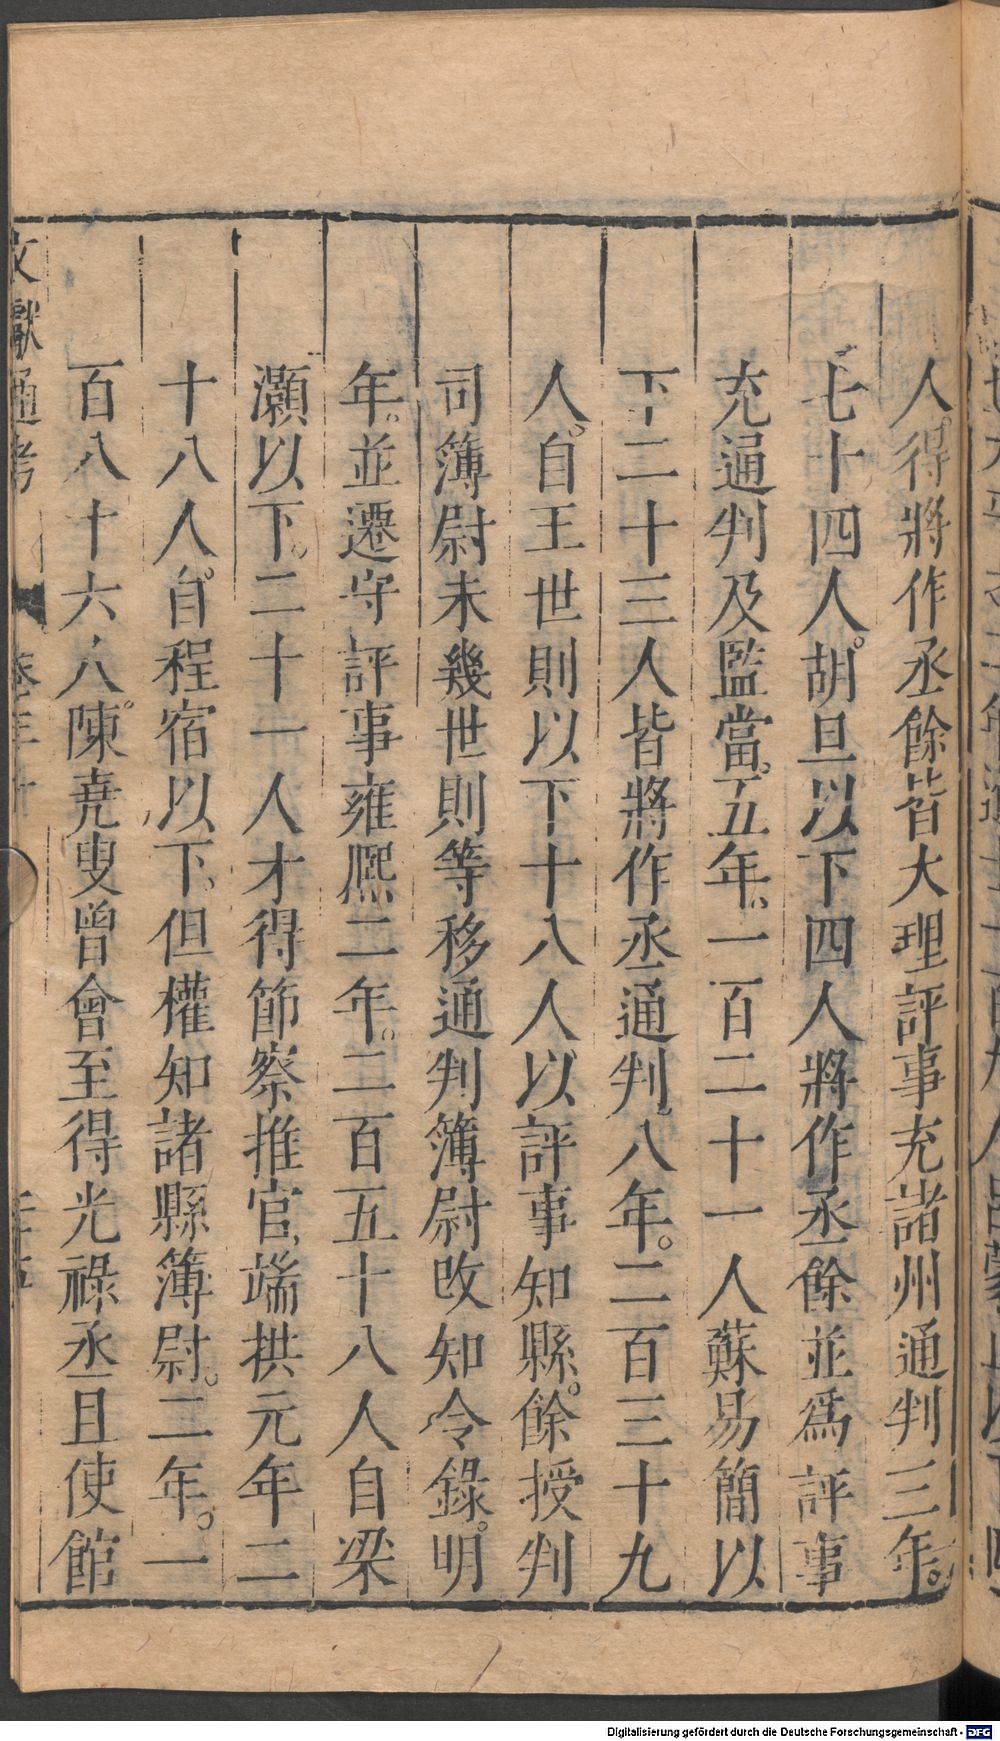 人。得將作丞餘皆大理評事充諸州通判三年。
七十四人。胡旦以下四人將作丞餘並爲評事
充通判及監當。五年、一百二十一人蘇易簡以
下二十三人皆將作丞通判、八年。二百三十九
人。自王世則以下十八人以評事知縣。餘授判
司簿尉未幾世則等移通判簿尉改知令錄。明
年。並遷守評事雍熙二年。二百五十八人自梁
灝以下。二十一人才得節察推官、端拱元年二
十八人。自程宿以下、但權知諸縣簿尉。二年。一
百八十六人。陳堯叟曾會至得光祿丞且使館
文獻通考
Digitalisierung gefördert durch die Deutsche Forschungsgemeinschaft - DFG